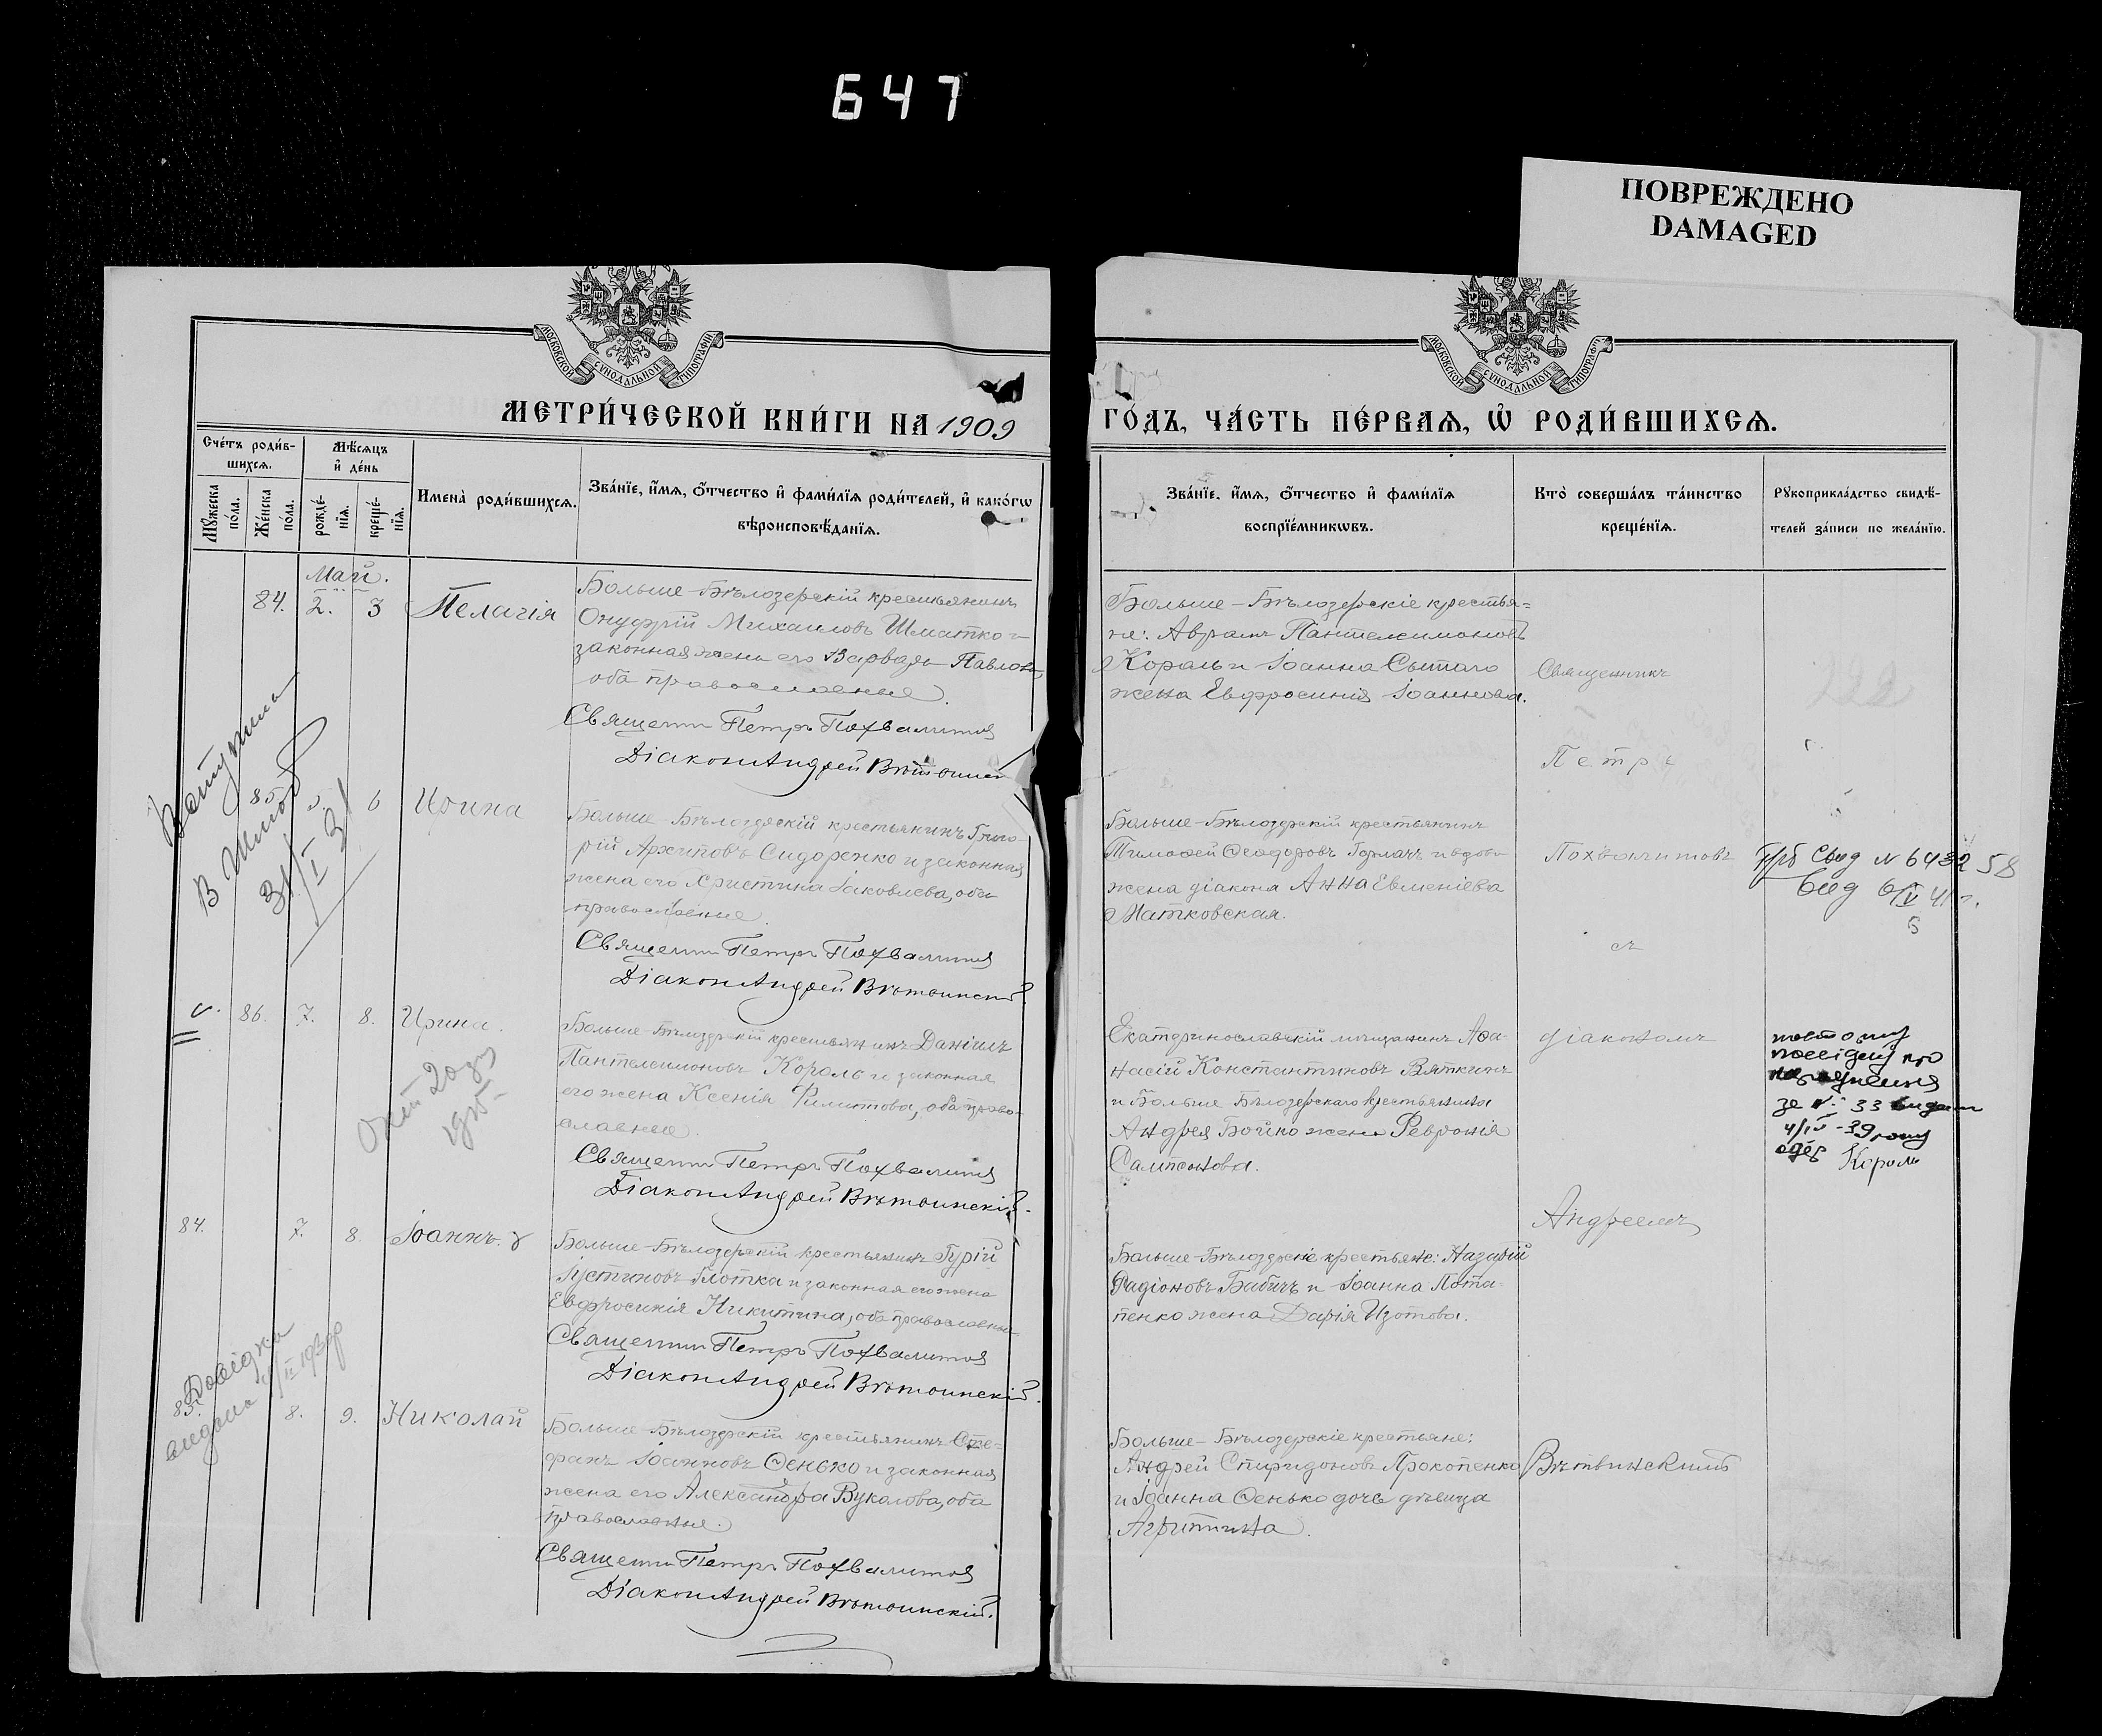 647
ПОВРЕЖДЕНО
DAMAGED
МОСКОВСКОЙ СУНОДАЛЬНОЙ ТИПОГРАФІИ
МОСКОВСКОЙ СУНОДАЛЬНОЙ ТИПОГРАФІИ
МЕТРИ́ЧЕСКОЙ КНИ́ГИ НА 1909
ГО́ДЪ, ЧА́СТЬ ПЕ́РВАѦ, Ѡ҆ РОДИ́ВШИХСѦ.
Сче́тъ роди́в-
шихсѧ.
Мѣ́сѧцъ
и҆ де́нь
Мꙋ́жеска
по́ла.
Же́нска
по́ла.
рожде́-
нїѧ.
креще́-
нїѧ.
Имена̀ роди́вшихсѧ.
Зва́нїе, и҆́мѧ, ѻ҆́тчество и҆ фами́лїѧ роди́телей, и҆ како́гѡ
вѣроисповѣ́данїѧ.
Зва́нїе, и҆́мѧ, ѻ҆́тчество и҆ фами́лїѧ
воспрїе́мникѡвъ.
Кто̀ соверша́лъ та́инство
креще́нїѧ.
Рꙋкоприкла́дство свидѣ́-
телей за́писи по жела́нїю.
Май.
84. 2. 3 Пелагія
Больше-Бѣлозерскій крестьянинъ
Онуфрій Михаиловъ Шматко и
законная жена его Варвара Павлова,
оба православные.
Священн Петръ Похвалитов
Діаконъ Андрей Вѣтвинскій
Больше-Бѣлозерскіе крестья=
не: Авраамъ Пантелеимоновъ
Король и Іоанна Сытаго
жена Евфросинія Іоаннова.
Священникъ
Петръ
85. 5. 6 Ирина
Больше-Бѣлозерскій крестьянинъ Григо-
рій Архиповъ Сидоренко и законная
жена его Христина Іаковлева, оба
православные.
Священн Петръ Похвалитов
Діаконъ Андрей Вѣтвинскій.
Больше-Бѣлозерскій крестьянинъ
Тимоѳей Ѳеодоровъ Горлачъ и вдова
жена діакона Анна Евменіева
Матковская.
Похвалитовъ
съ
31/I 31
86. 7. 8. Ирина.
Больше-Бѣлозерскій крестьянинъ Даніилъ
Пантелеимоновъ Король и законная
его жена Ксенія Филиппова, оба право-
славные.
Священн Петръ Похвалитов
Діаконъ Андрей Вѣтвинскій.
Екатеринославскій мѣщанинъ Аѳа-
насій Константиновъ Вяткинъ
и Больше-Бѣлозерскаго крестьянина
Андрея Бойко жена Февронія
Сампсонова.
діакономъ
за № 33 видан
4/IV-39 року
Король
84. 7. 8. Іоаннъ.
Больше-Бѣлозерскій крестьянинъ Гурій
Іустиновъ Глотка и законная его жена
Евфросинія Никитина, оба православные
Священн Петръ Похвалитов
Діаконъ Андрей Вѣтвинскій.
Андреемъ
Больше-Бѣлозерскіе крестьяне: Назарій
Радіоновъ Бабичъ и Іоанна Пота-
пенко жена Дарія Изотова.
Довідка
видана
85. 8. 9. Николай
Больше-Бѣлозерскій крестьянинъ Сте=
фанъ Іоанновъ Ѳенько и законная
жена его Александра Вуколова, оба
православные.
Священн Петръ Похвалитов
Діаконъ Андрей Вѣтвинскій.
Больше-Бѣлозерскіе крестьяне:
Андрей Спиридоновъ Прокопенко
и Іоанна Ѳенько дочь дѣвица
Агриппина.
Вѣтвинскимъ